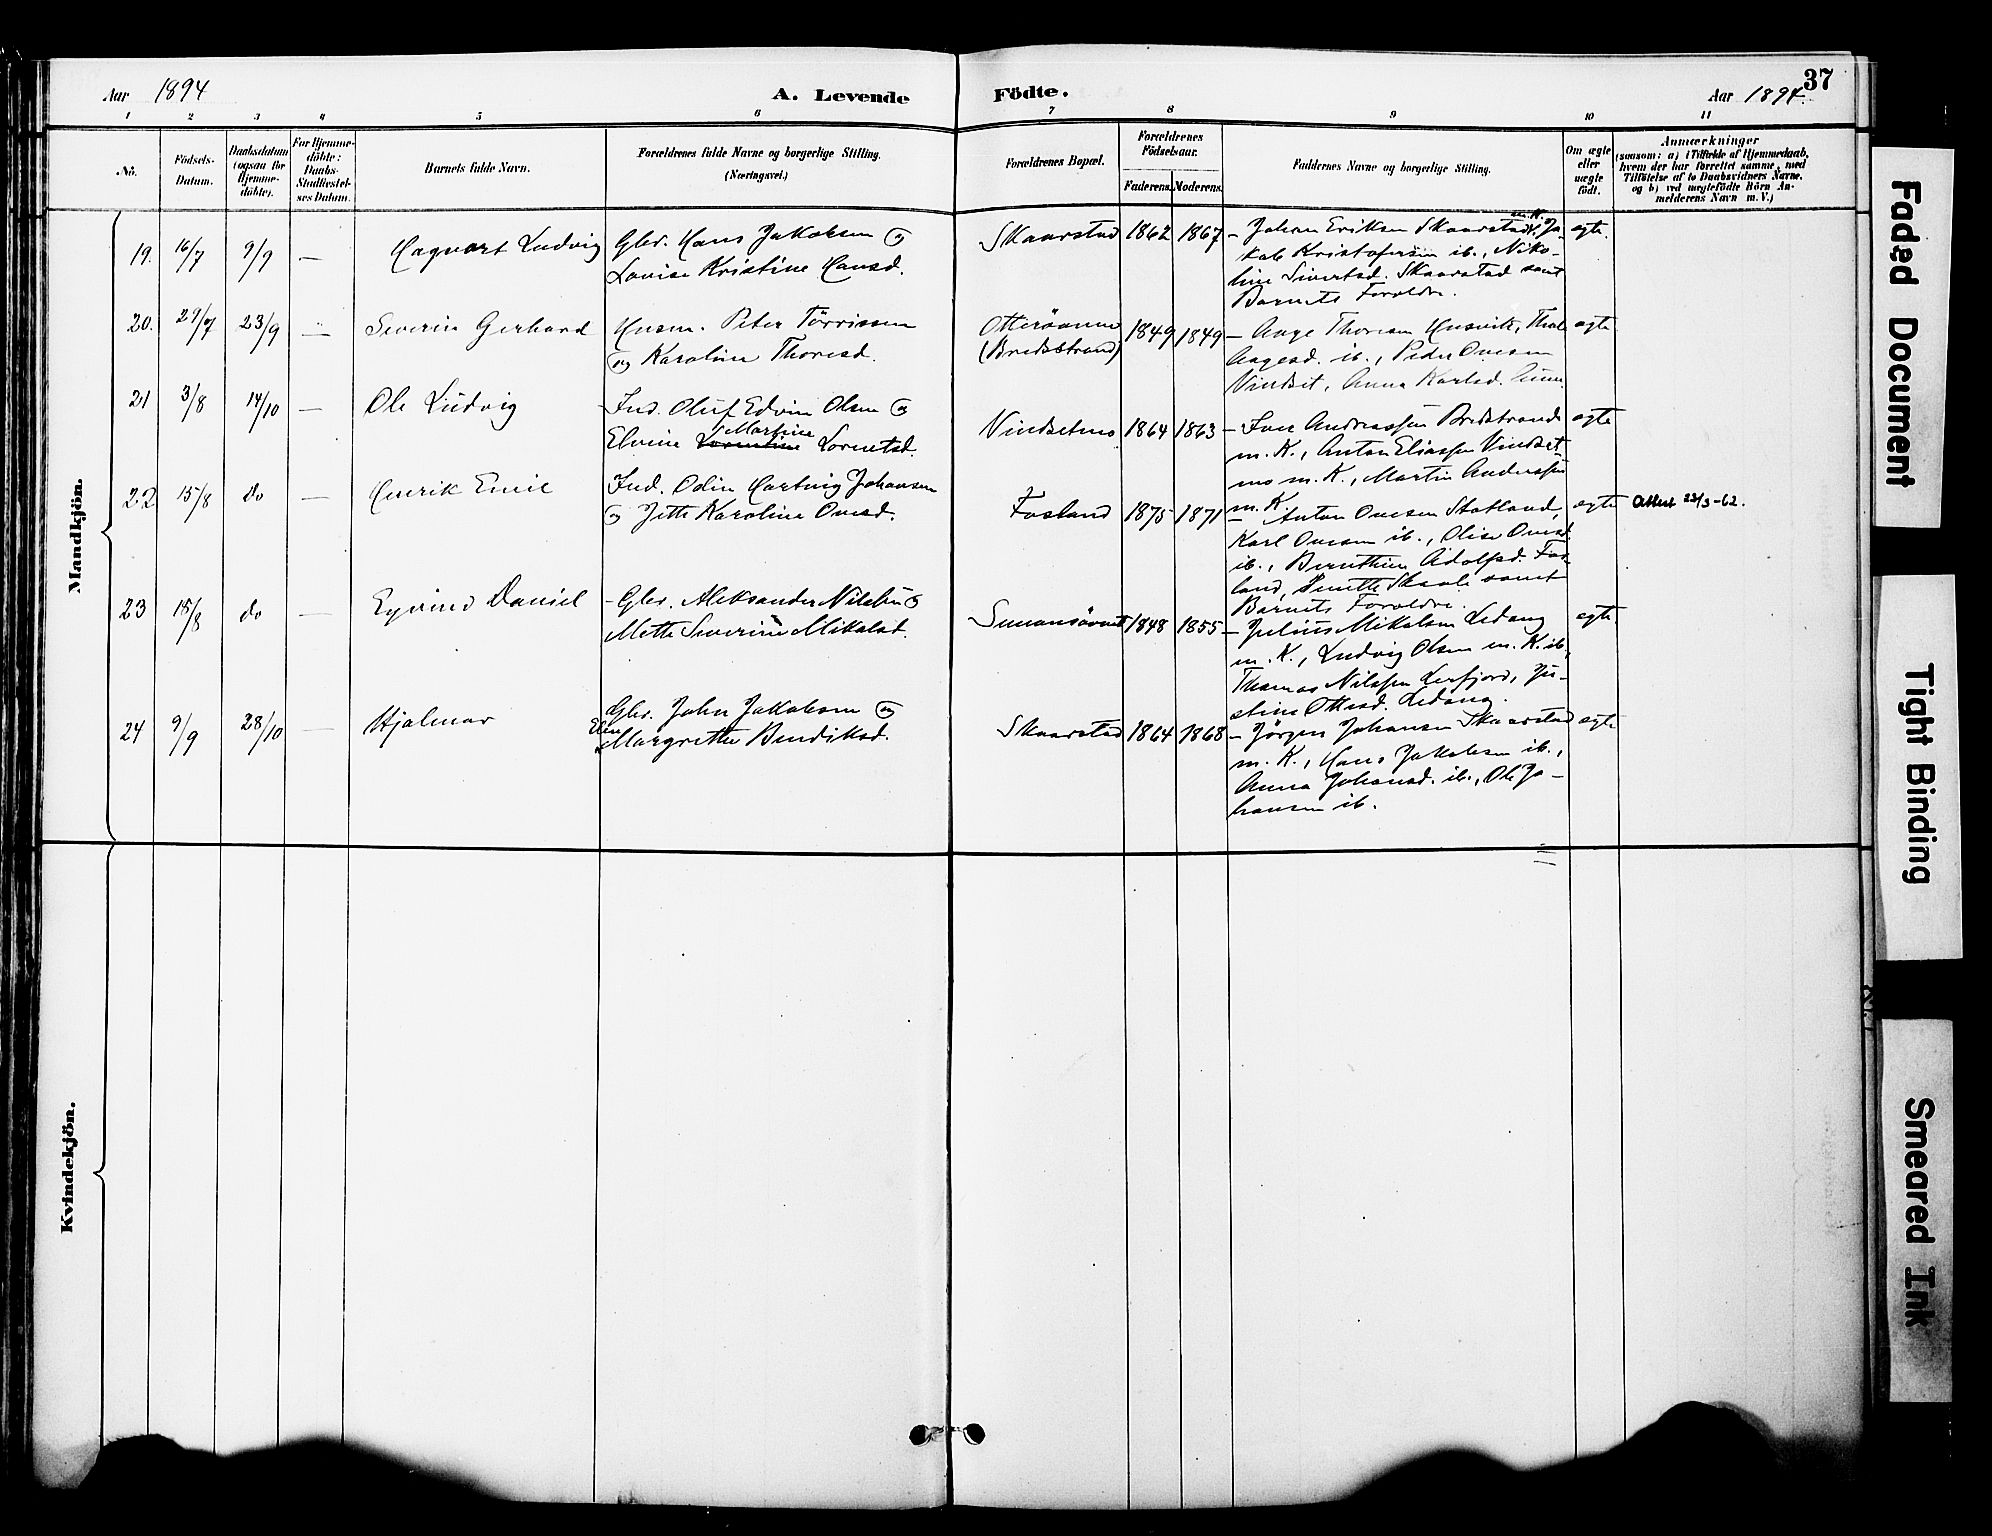 37
Aar 1894
A. Levende Födte.
Aar 1894.
1 2 3 4 5 6 7 8 9 10 11
No.
Födsels-
Datum.
Daabsdatum
(ogsaa for
Hjemme-
döbte).
For Hjemme-
döbte:
Daabs-
Stadfæstel-
ses Datum.
Barnets fulde Navn.
Forældrenes fulde Navne og borgerlige Stilling.
(Næringsvei.)
Forældrenes Bopæl.
Forældrenes
Födselsaar.
Faderens. Moderens.
Faddernes Navne og borgerlige Stilling.
Om ægte
eller
uægte
født.
Anmærkninger
(saasom: a) i Tilfælde af Hjemmedaab,
hvem der har forrettet samme, med
Tilföielse af to Daabsvidners Navne,
og b) ved uægtefödte Börn An-
melderens Navn m. V.)
Mandkjön.
19. 16/7 9/9 — Hagvart Ludvig
Gbr. Hans Jakobsen og
Lovise Kristine Hansd.
Skaarstad 1862 1867
– Johan Eriksen Skaarstad m. K., Ja-
kob Kristofersen ib., Niko-
line Sivertsd. Skaarstad samt
Barnets Foreldre.
ægte.
20. 27/7 23/9 — Severin Gerhard
Husm. Peter Törrissen
og Karoline Thoresd.
Otterøen
(Bredstrand) 1849 1849
– Aage Thoresen Husvik,
Aagesd. ib., Peder Ovesen
Vindset, Anna Karlsd.
ægte
21 3/8 14/10 — Ole Ludvig
Ind. Oluf Edvin Olsen og
Martine
Elvine Lorentine Lorentsd.
Vindsetmo 1864 1863
– Iver Andreassen Bredstrand
m. K., Anton Eliassen Vindset-
mo m. K., Martin Anderssen
m. K.
ægte
22 15/8 do — Henrik Emil
Ind. Odin Hartvig Johansen
og Jette Karoline Ovesd.
Fosland 1875 1871
– Anton Ovesen Statland,
Karl Ovesen ib., Olise Ovesd.
ib., Bernthine Adolfsd. Fos-
land, Skaale samt
Barnets Foreldre.
ægte
Attest 23/3-62.
23 15/8 do — Eyvind Daniel
– Gbr. Aleksander Nilssen og
Mette Severine Mikalsd.
Simonsövnet 1848 1855
– Julius Mikalsen Ledang
m. K., Ludvig Olsen m. K. ib.,
Thomas Nilssen Lerfjord, Ju-
stine Ottesd. Ledang.
ægte
24 9/9 28/10 — Hjalmar
Gbr. John Jakobsen og
Eline Margrethe Bendiksd.
Skaarstad 1864 1868
– Jörgen Johansen Skaarstad
m. K., Hans Jakobsen ib.,
Anna Johansd. ib., Ole Jo-
hansen ib.
ægte
Kvindekjön.
Faded Document
Tight Binding
Smeared Ink